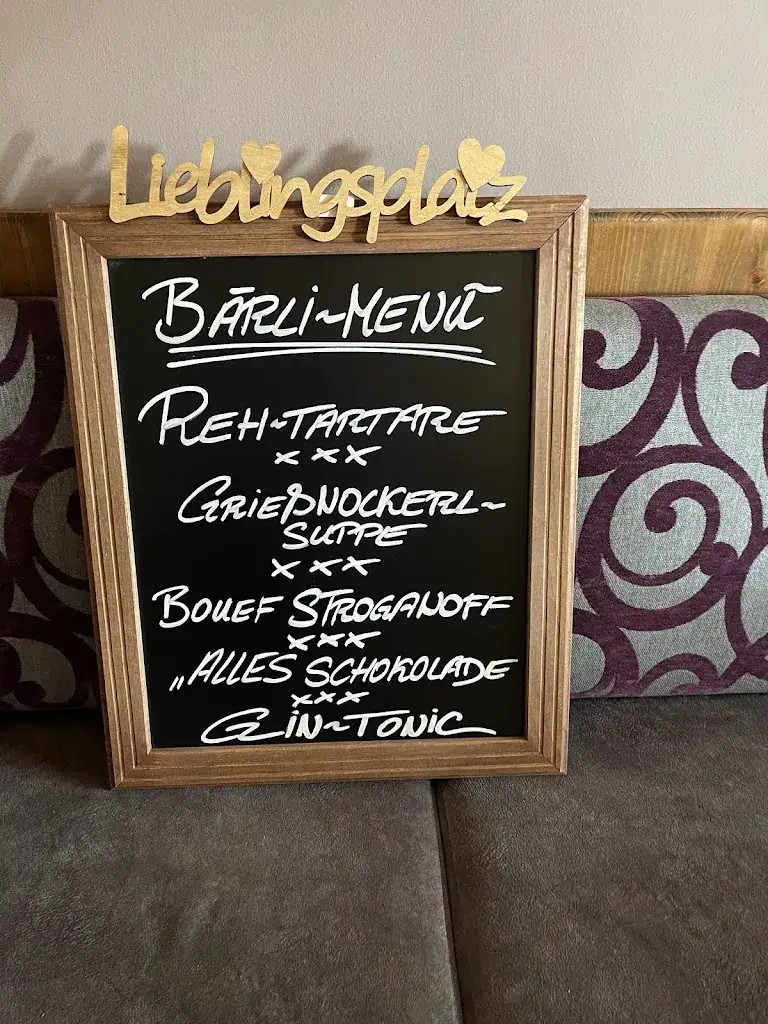 Lieblingsplatz
BÄRLI~MENÜ
REH~TARTARE
x x x
GRIEßNOCKERL~
SUPPE
x x x
BOUEF STROGANOFF
x x x
„ALLES SCHOKOLADE
x x x
GIN~TONIC